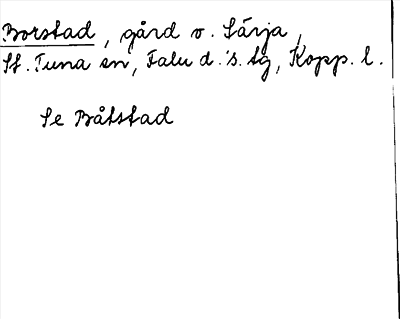 Borstad, gård v. Särja,
St. Tuna sn, Falu d:s. tg, Kopp. l.
Se Båtstad